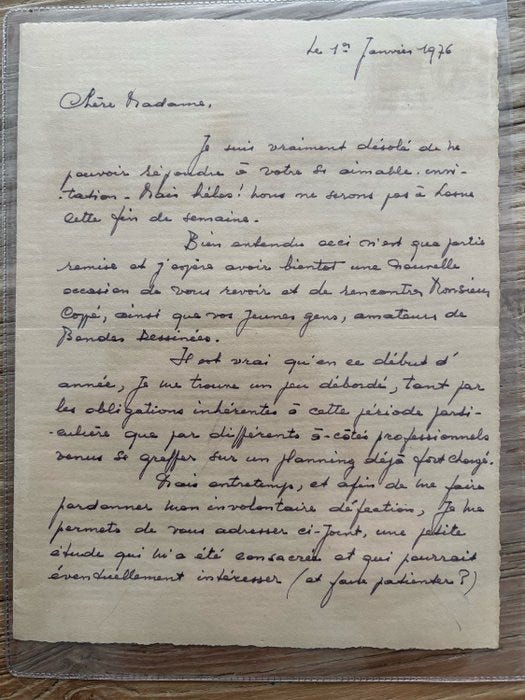 Le 1er Janvier 1976
Chère Madame,
Je suis vraiment désolé de ne
pouvoir répondre à votre si aimable invi-
-tation - Mais hélas! nous ne serons pas à Lasne
cette fin de semaine.
Bien entendu ceci n'est que partie
remise et j'espère avoir bientot une nouvelle
occasion de vous revoir et de rencontrer Monsieur
Coppé, ainsi que vos jeunes gens, amateurs de
Bandes Dessinées.
Il est vrai qu'en ce début d'
année, je me trouve un peu débordé, tant par
les obligations inhérentes à cette période parti-
-culière que par différents à-côtés professionnels
venus se greffer sur un planning déjà fort chargé.
Mais entretemps, et afin de me faire
pardonner mon involontaire défection, je me
permets de vous adresser ci-joint, une petite
étude qui m'a été consacrée et qui pourrait
éventuellement intéresser (et faire patienter?)